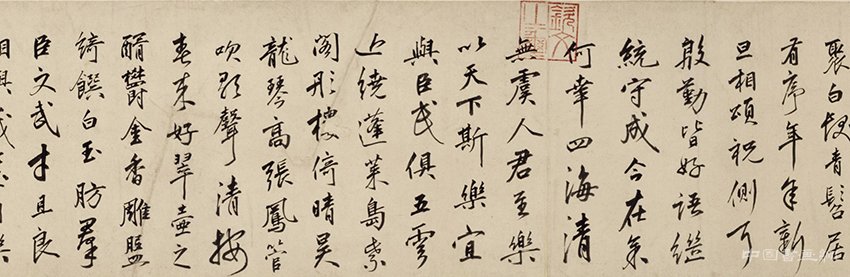 聚白叟青髫居
有序年年新
旦相頌祝側耳
殷勤皆好語繼
統守成今在余
何幸四海清
無虞人君至樂
以天下斯樂宜
與臣民俱五雲
上繞蓬萊島紫
閣彤樓倚晴昊
龍琴高張鳳管
吹歌聲清按
春來好翠壺之
醑鬱金香雕盤
綺饌白玉肪羣
臣文武才且良